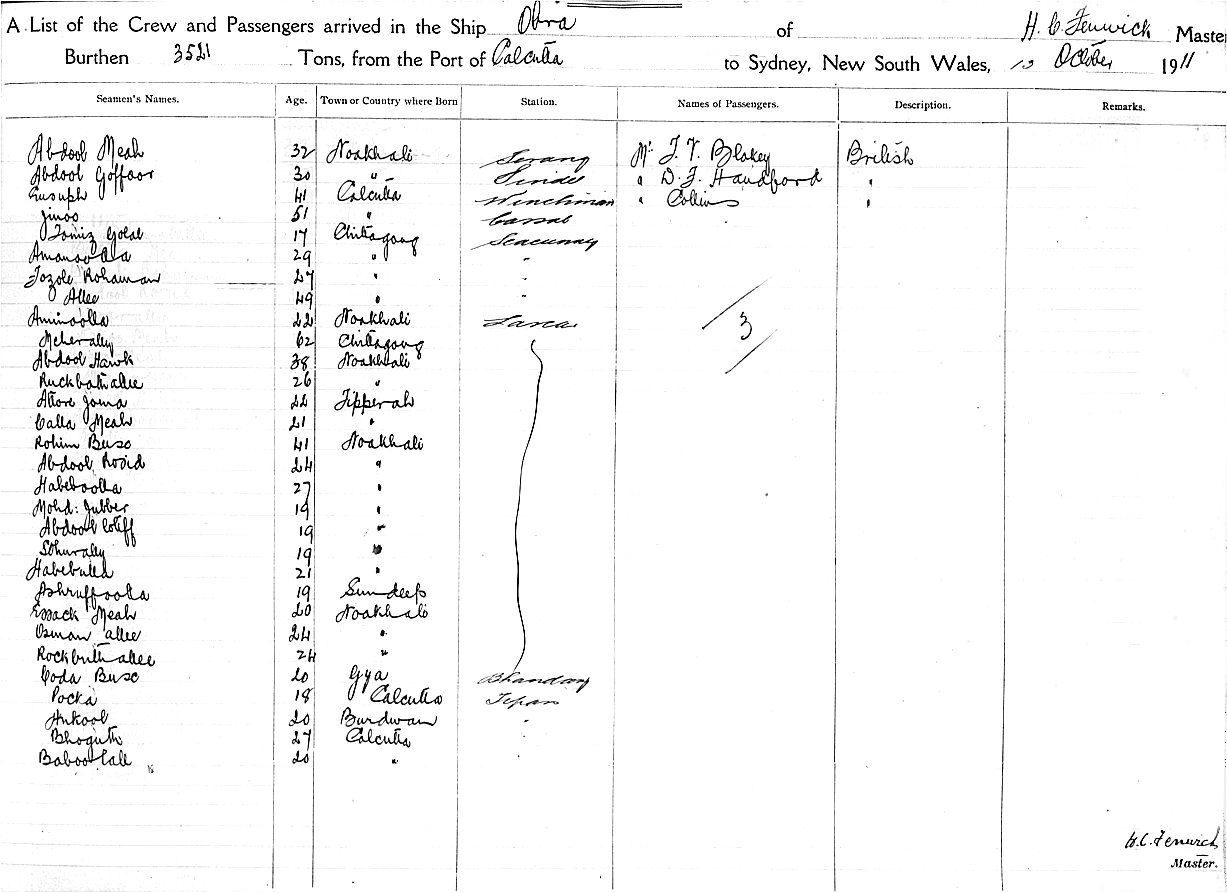 A List of the Crew and Passengers arrived in the Ship Obra of H. C. Fenwick Master
Burthen 3521 Tons, from the Port of Calcutta to Sydney, New South Wales, 13 October 1911
Seamen's Names. Age. Town or Country where Born Station. Names of Passengers. Description. Remarks.
Abdool Meah 32 Noakhali Serang Mr J. V. Blakey British
Abdool Goffoor 30 " Tindel " D. J. Handford "
Eusuph 41 Calcutta Winchman " Collins "
Jinoo 51 " Cassab
Tomiz Golal 17 Chittagong Seacunny
29 " "
Fozole Rohaman 27 " "
Allee 49 " "
Aminoolla 22 Noakhali Lascar 3
Meheraliy 62 Chittagong
Abdool Hawk 38 Noakhali
Ruckbatn allee 26 "
Attore Joma 22 Tipperah
Calla Meah 21 "
Rohim Buso 41 Noakhali
Abdool Rosid 24 "
Habeboolla 27 "
Mohd: Jubber 19 "
Abdool Lotiff 19 "
19 "
Habebulla 21 "
Ashruffoolla 19 Sundeep
Essack Meah 20 Noakhali
Osman allee 24 "
Rockbuth allee 24 "
Coda Buso 20 Gya Bhandary
Pocka 18 Calcutta Topas
Hukool 20 Burdwan "
Bhoguth 27 Calcutta "
Baboo Lall 20 " "
H. C. Fenwick
Master.